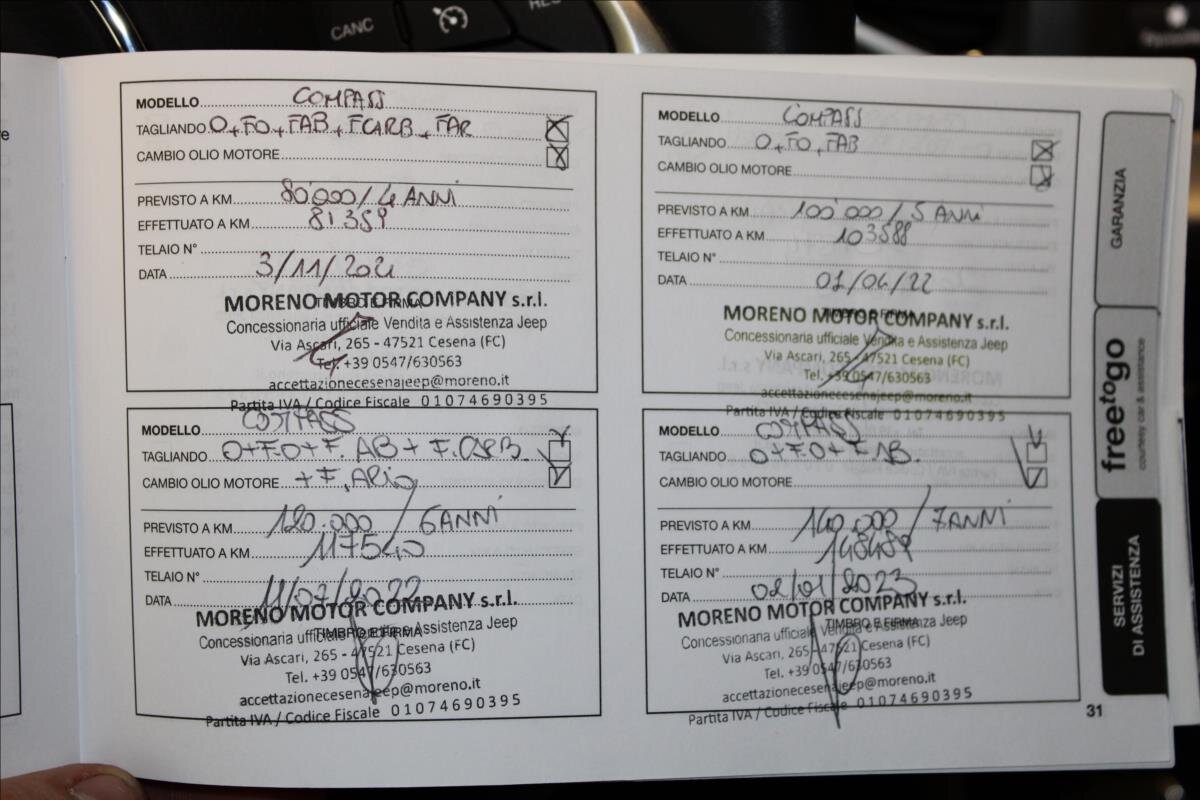 CANC
RES
e
MODELLO COMPASS
TAGLIANDO O+FO+FAB+FCARB+FAR
CAMBIO OLIO MOTORE
PREVISTO A KM 80'000/4 ANNI
EFFETTUATO A KM 81359
TELAIO N°
DATA 3/11/2021
TIMBRO E FIRMA
MORENO MOTOR COMPANY s.r.l.
Concessionaria ufficiale Vendita e Assistenza Jeep
Via Ascari, 265 - 47521 Cesena (FC)
Tel. +39 0547/630563
accettazionecesenajeep@moreno.it
Partita IVA / Codice Fiscale 01074690395
MODELLO COMPASS
TAGLIANDO O+FO+FAB
CAMBIO OLIO MOTORE
PREVISTO A KM 100'000/5 ANNI
EFFETTUATO A KM 103588
TELAIO N°
DATA 01/04/22
TIMBRO E FIRMA
MORENO MOTOR COMPANY s.r.l.
Concessionaria ufficiale Vendita e Assistenza Jeep
Via Ascari, 265 - 47521 Cesena (FC)
Tel. +39 0547/630563
accettazionecesenajeep@moreno.it
Partita IVA / Codice Fiscale 01074690395
MODELLO COMPASS
TAGLIANDO O+F.O+F.AB+F.CARB.
CAMBIO OLIO MOTORE +F.ARIA
PREVISTO A KM 120.000/6ANNI
EFFETTUATO A KM 117540
TELAIO N°
DATA 11/07/2022
TIMBRO E FIRMA
MORENO MOTOR COMPANY s.r.l.
Concessionaria ufficiale Vendita e Assistenza Jeep
Via Ascari, 265 - 47521 Cesena (FC)
Tel. +39 0547/630563
accettazionecesenajeep@moreno.it
Partita IVA / Codice Fiscale 01074690395
MODELLO COMPASS
TAGLIANDO O+F.O+F.AB.
CAMBIO OLIO MOTORE
PREVISTO A KM 140.000/7ANNI
EFFETTUATO A KM 148489
TELAIO N°
DATA 02/01/2023
TIMBRO E FIRMA
MORENO MOTOR COMPANY s.r.l.
Concessionaria ufficiale Vendita e Assistenza Jeep
Via Ascari, 265 - 47521 Cesena (FC)
Tel. +39 0547/630563
accettazionecesenajeep@moreno.it
Partita IVA / Codice Fiscale 01074690395
GARANZIA
freetogo
courtesy car & assistance
SERVIZI
DI ASSISTENZA
31